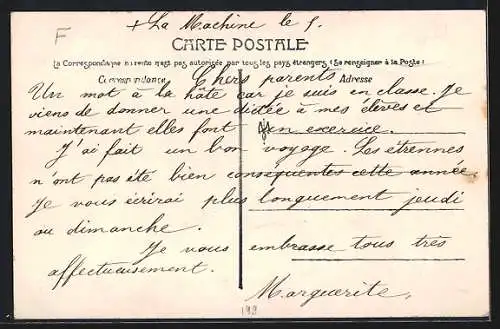 F
+ La Machine le 5.
CARTE POSTALE
La Correspondance au recto n'est pas autorisée par tous les pays étrangers (Se renseigner à la Poste)
Correspondance Adresse
Chers parents
Un mot à la hâte car je suis en classe. Je
viens de donner une dictée à mes élèves et
maintenant elles font un exercice.
J'ai fait un bon voyage. Les étrennes
n'ont pas été bien conséquentes cette année
Je vous écrirai plus longuement jeudi
ou dimanche.
Je vous embrasse tous très
affectueusement.
Marguerite.